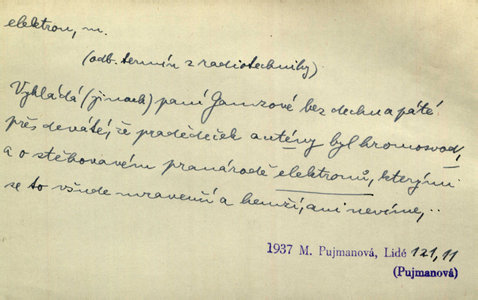 elektron, m.
(odb. termín z radiotechniky)
Vykládá (jinoch) paní Gamzové bez dechu a páté
přes deváté, že pradědeček antény byl hromosvod,
a o stěhovavém pranárodě elektronů, kterými
se to všude mravenčí a hemží, ani nevíme, ..
1937 M. Pujmanová, Lidé 121, 11
(Pujmanová)